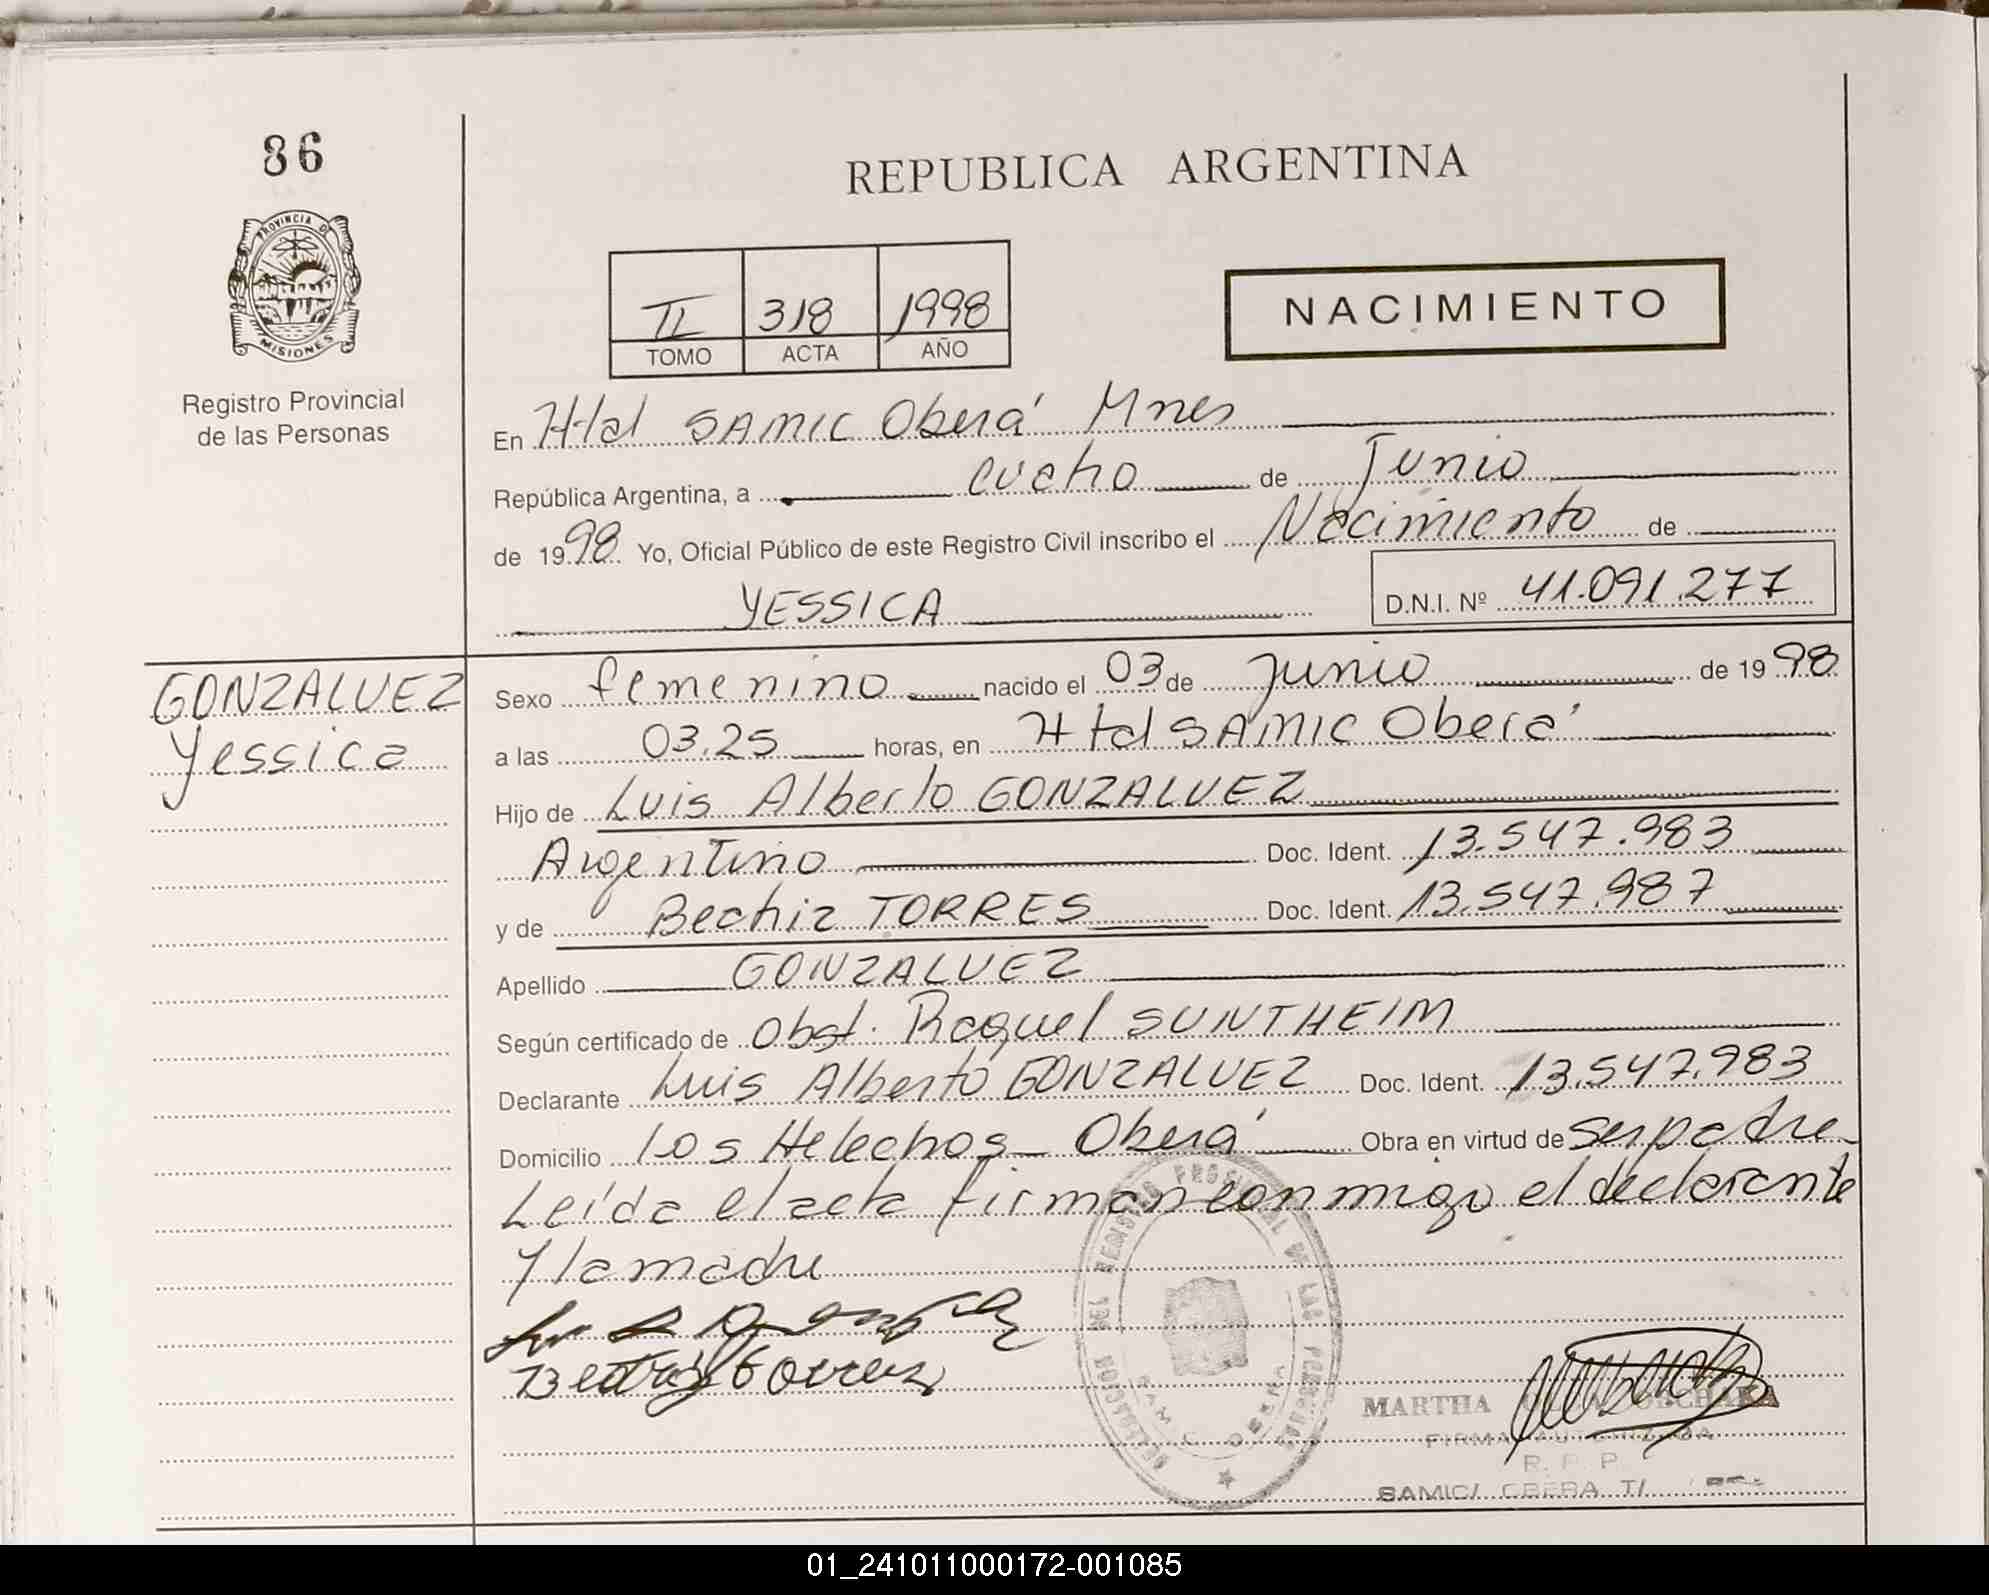 86
REPUBLICA ARGENTINA
PROVINCIA DE
MISIONES
Registro Provincial
de las Personas
II 318 1998
TOMO ACTA AÑO
NACIMIENTO
En Htal SAMIC Oberá Mnes
República Argentina, a ocho de Junio
de 1998 Yo, Oficial Público de este Registro Civil inscribo el Nacimiento de
YESSICA D.N.I. Nº 41.091.277
GONZALVEZ
Yessica
Sexo femenino nacido el 03 de junio de 1998
a las 03.25 horas, en Htal SAMIC Oberá
Hijo de Luis Alberto GONZALVEZ
Argentino Doc. Ident. 13.547.983
y de Beatriz TORRES Doc. Ident. 13.547.987
Apellido GONZALVEZ
Según certificado de Obst. Raquel SUNTHEIM
Declarante Luis Alberto GONZALVEZ Doc. Ident. 13.547.983
Domicilio Los Helechos - Oberá Obra en virtud de ser padre
Leída el acta firman conmigo el declarante
y la madre
Beatriz torres
DELEGACION DEL REGISTRO PROVINCIAL DE LAS PERSONAS
SAMIC OBERA
MARTHA
FIRMA AUTORIZADA
R. P. P.
SAMIC/ OBERA
01_241011000172-001085